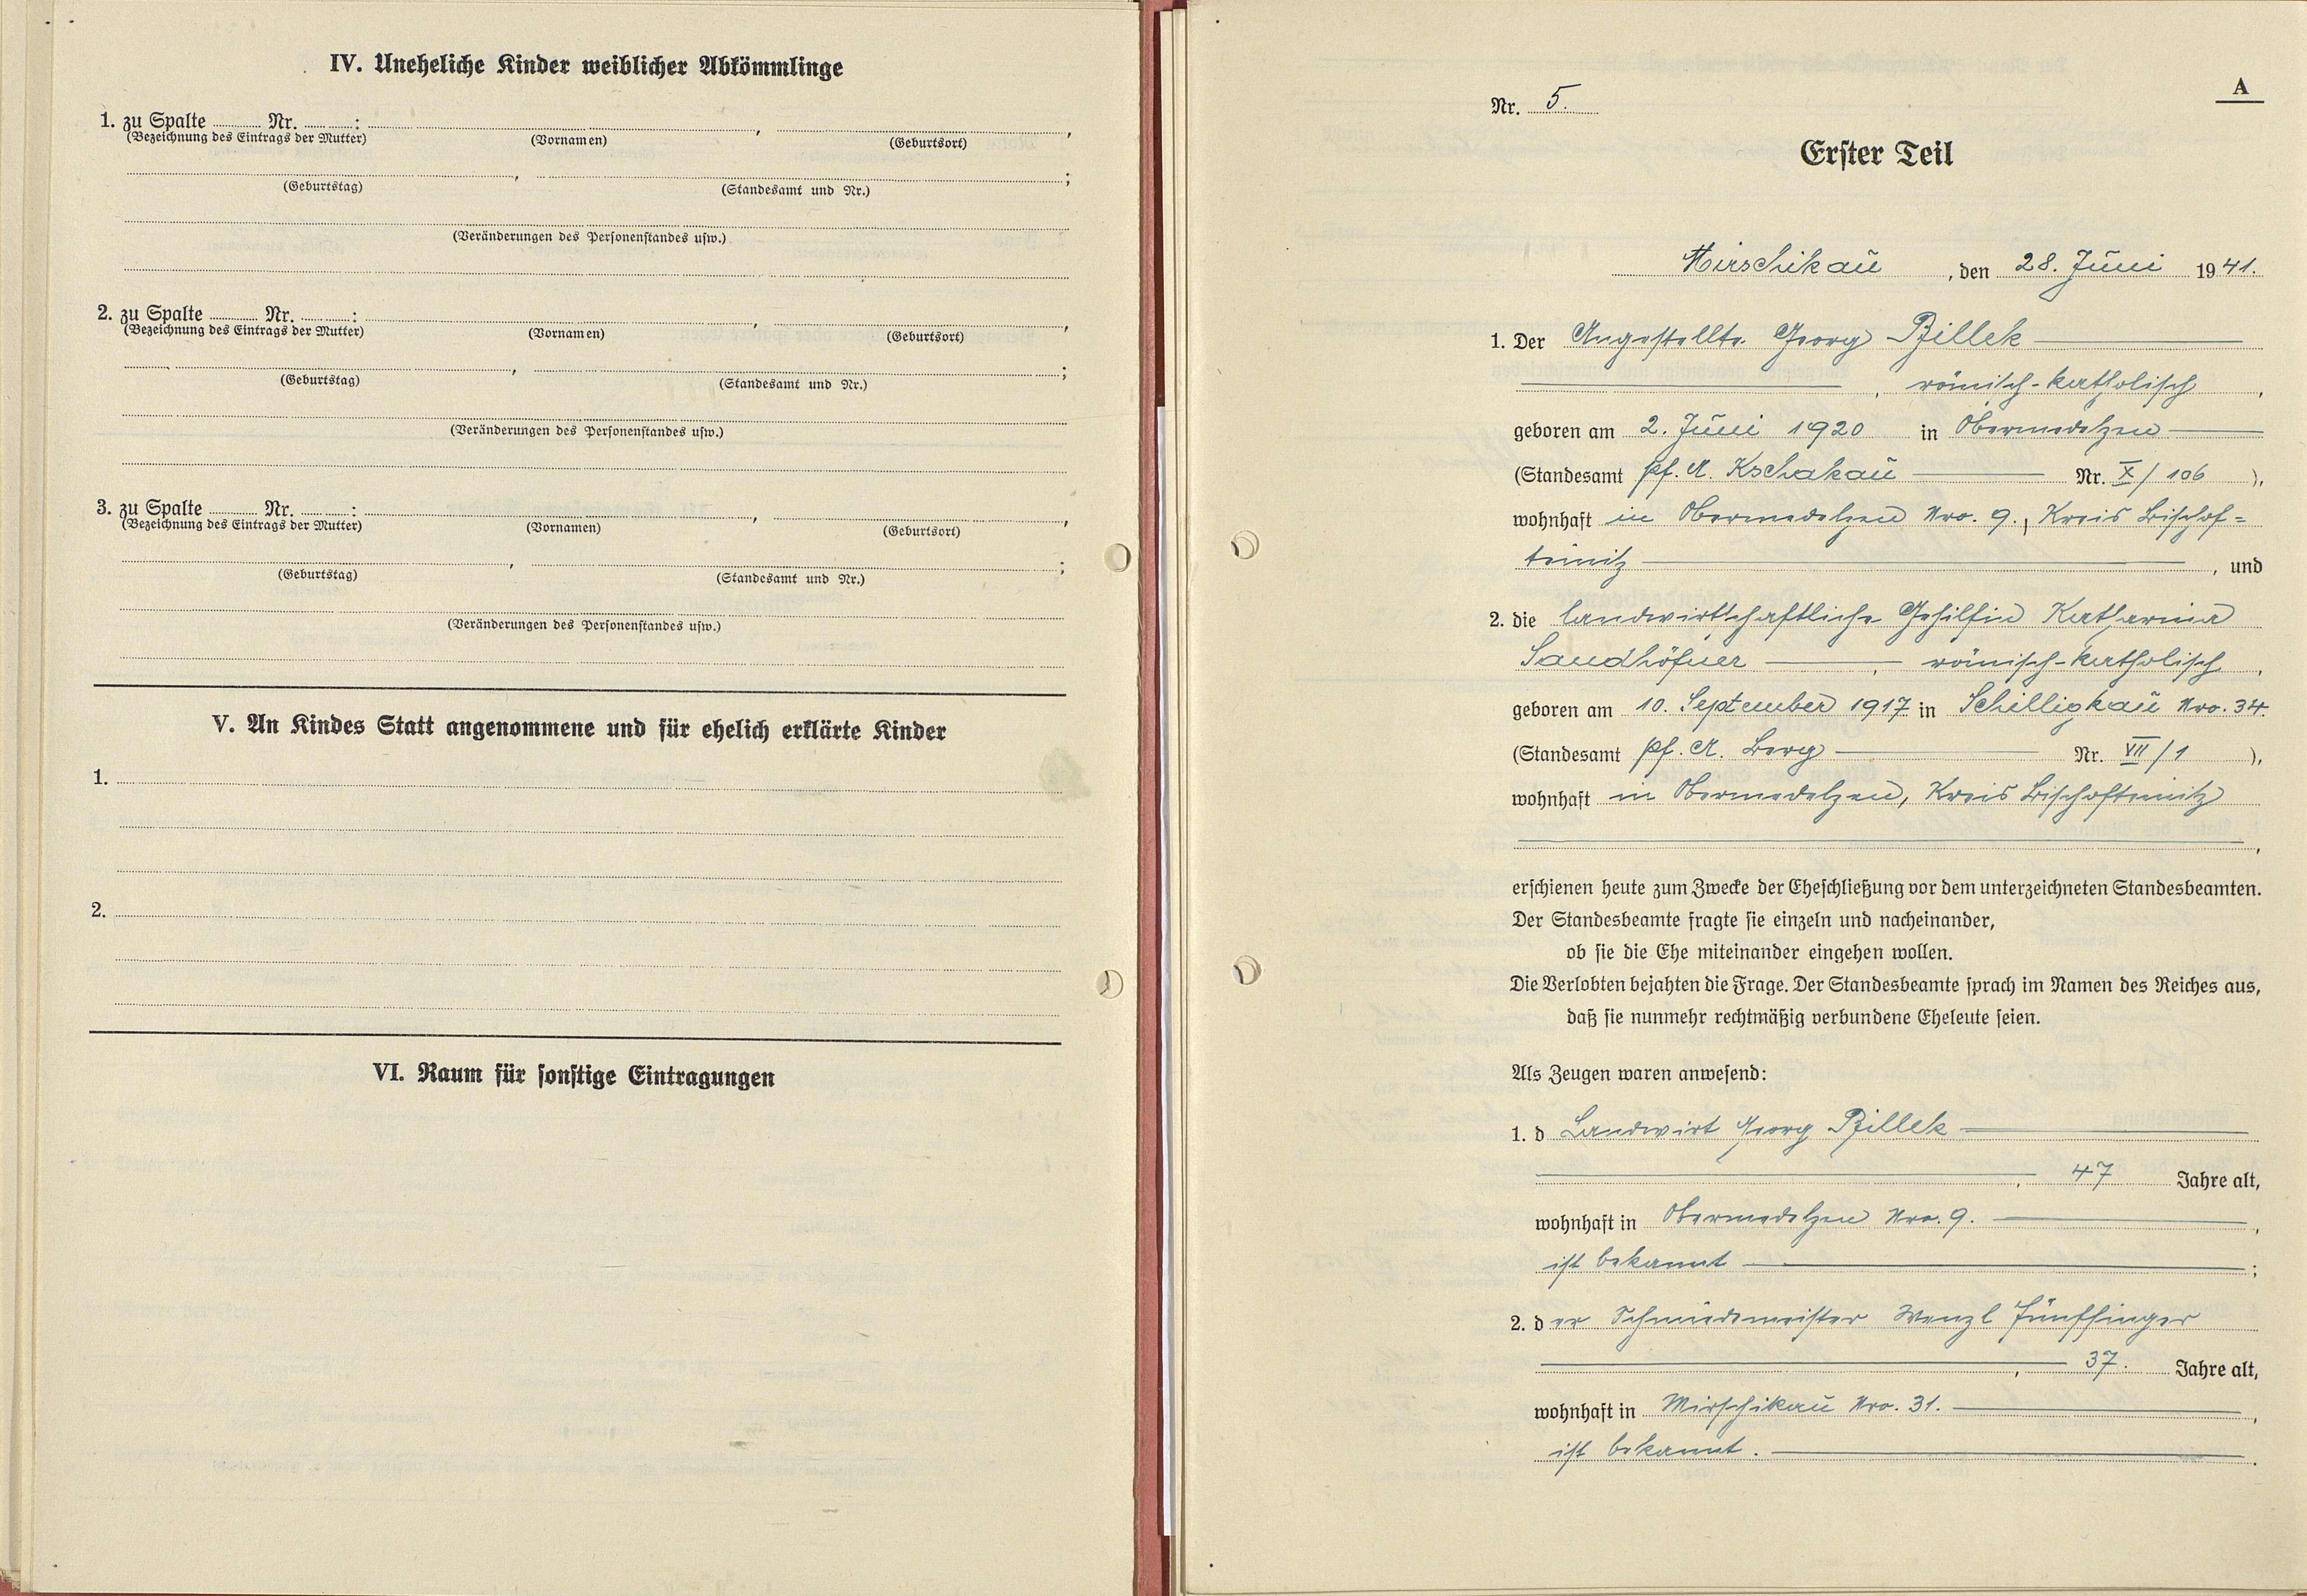 IV. Uneheliche Kinder weiblicher Abkömmlinge
1. zu Spalte ........ Nr. ........: ........, ........,
(Bezeichnung des Eintrags der Mutter) (Vornamen) (Geburtsort)
........, ........;
(Geburtstag) (Standesamt und Nr.)
(Veränderungen des Personenstandes usw.)
2. zu Spalte ........ Nr. ........: ........, ........,
(Bezeichnung des Eintrags der Mutter) (Vornamen) (Geburtsort)
........, ........;
(Geburtstag) (Standesamt und Nr.)
(Veränderungen des Personenstandes usw.)
3. zu Spalte ........ Nr. ........: ........, ........,
(Bezeichnung des Eintrags der Mutter) (Vornamen) (Geburtsort)
........, ........;
(Geburtstag) (Standesamt und Nr.)
(Veränderungen des Personenstandes usw.)
V. An Kindes Statt angenommene und für ehelich erklärte Kinder
1.
2.
VI. Raum für sonstige Eintragungen
A
Nr. 5.
Erster Teil
Mirschikau, den 28. Juni 1941.
1. Der Angestellte Georg Billek
, römisch-katholisch,
geboren am 2. Juni 1920 in Obermedelzen
(Standesamt pf. A. Kschakau Nr. X/106),
wohnhaft in Obermedelzen Nro. 9., Kreis Bischof=
teinitz, und
2. die landwirtschaftliche Gehilfin Katharina
Sandhöfner, römisch-katholisch,
geboren am 10. September 1917 in Schilligkau Nro. 34.
(Standesamt pf. A. Berg Nr. VII/1),
wohnhaft in Obermedelzen, Kreis Bischofteinitz
,
erschienen heute zum Zwecke der Eheschließung vor dem unterzeichneten Standesbeamten.
Der Standesbeamte fragte sie einzeln und nacheinander,
ob sie die Ehe miteinander eingehen wollen.
Die Verlobten bejahten die Frage. Der Standesbeamte sprach im Namen des Reiches aus,
daß sie nunmehr rechtmäßig verbundene Eheleute seien.
Als Zeugen waren anwesend:
1. d Landwirt Georg Billek
, 47 Jahre alt,
wohnhaft in Obermedelzen Nro. 9.,
ist bekannt;
2. der Schmiedemeister Wenzl Fünffinger
, 37. Jahre alt,
wohnhaft in Mirschikau Nro. 31.,
ist bekannt.